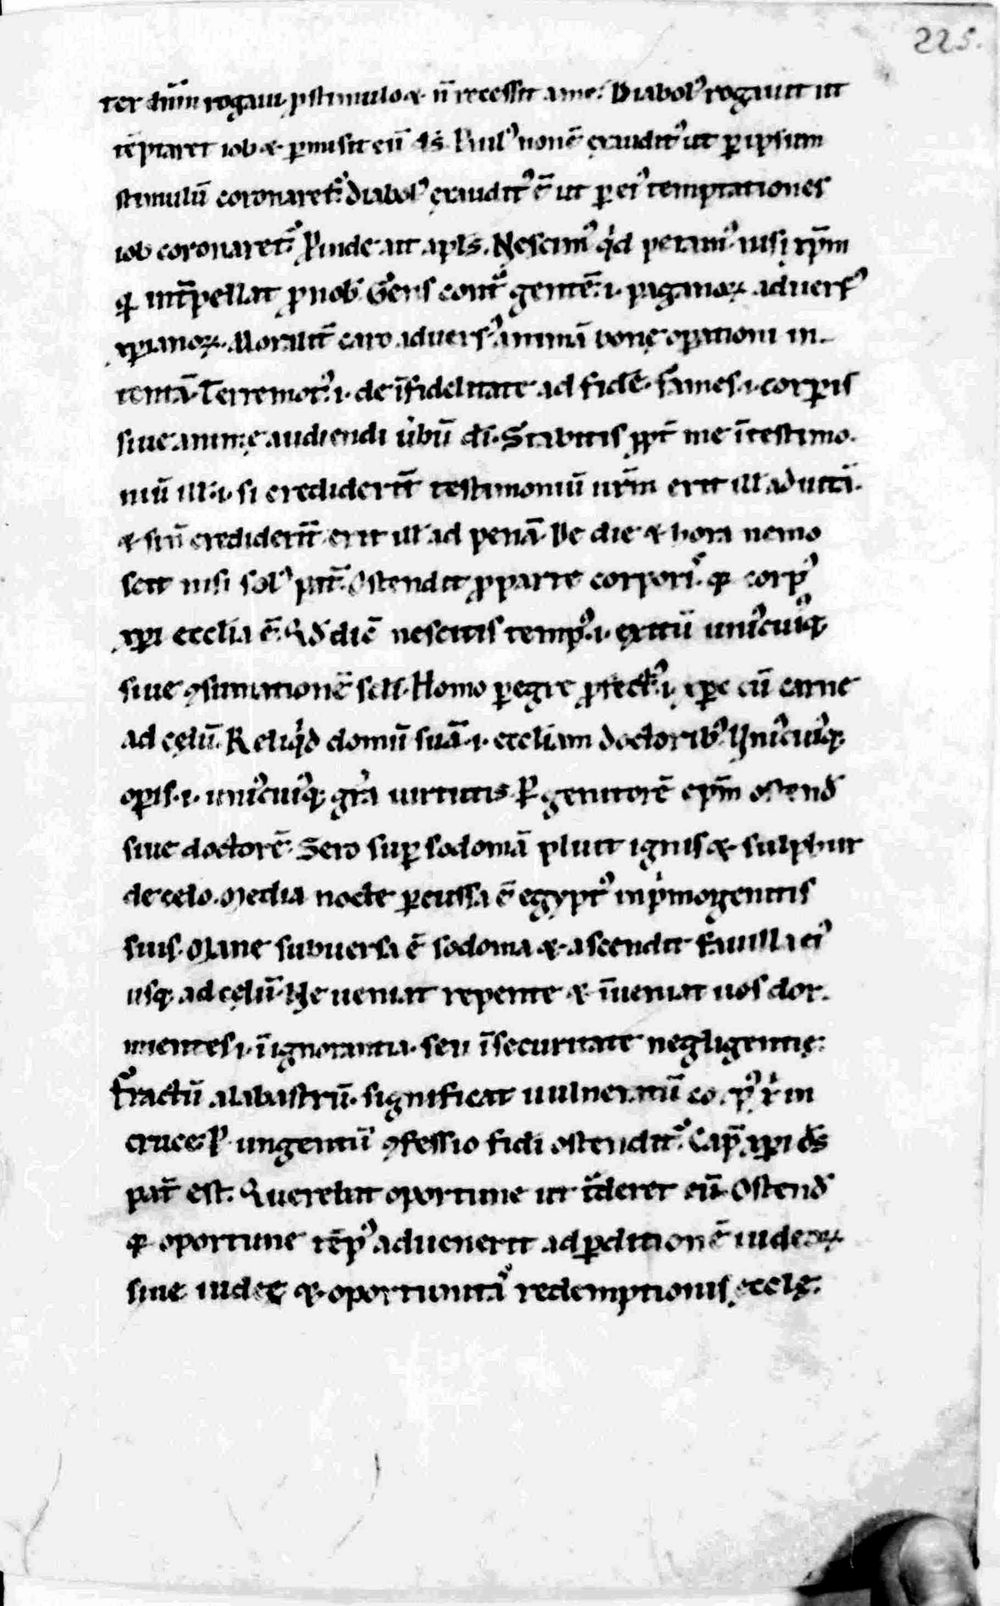 225.
ter dn̄m rogaui. p stimulo ⁊ n̄ recessit a me. Diabol᾽ rogauit ut
tēptaret iob ⁊ p̱misit eū d̄s. Paul᾽ non ē exaudit᾽ ut p̱ ipsum
stimulū coronaret᾽. diabol᾽ exaudit᾽ ē ut p̱ ei᾽ temptationes
iob coronaret᾽. Proinde ait apl̄s. Nescim᾽ qͥd petam᾽ nisi xp̄m
qͥ int̄pellat ꝓ nob̄. Gens contͣ gentē .i. paganoꝝ aduers᾽
xp̄ianoꝝ. Moralit̄ caro aduers᾽ animā bonę op̱ationi in-
tentā. Terremot᾽ .i. de īfidelitate ad fidē. fames .i. corp̱is
siue animę audiendi u̇bū dī. Stabitis ꝓpt̄ me ī testimo-
niū ill̄ .i. si crediderīt testimoniū ur̄m erit ill̄ ad uitā.
⁊ si n̄ crediderīt erit ill̄ ad penā. De die ⁊ hora nemo
scit nisi sol᾽ pat̄. Ostendit ꝓ parte corpori᾽ qͥ corp᾽
xp̄i ecclīa ē. Qd̄ diē nescitis temp᾽ .i. exitū uni᾽cuiꝗ᾽
siue ꝯsumationē scl̄i. Homo p̱egre ꝓfect᾽ .i. xp̄c cū carne
ad cęlū. Reliqͥd domū suā .i. ecclīam doctorib᾽. Uni᾽cuiꝗ᾽
op̱is .i. uni᾽cuiꝗ᾽ gr̄a uirtutis. P̱ genitorē xp̄m ostend̄
siue doctorē. Sero sup̱ sodomā pluit ignis ⁊ sulphur
de cęlo. Media nocte p̱cussa ē egypt᾽ in pͥmogenitis
suis. Mane subuersa ē sodoma ⁊ ascendit fauilla ei᾽
usꝗ ad cęlū. Ne ueniat repente ⁊ īueniat uos dor-
mientes .i. ī ignorantia. seu ī securitate negligentię.
Fractū alabastrū significat uulneratū corp᾽ xp̄i in
cruce. P̱ ungentū ꝯfessio fidi ostendit᾽. Cap̄ xp̄i d̄s
pat̄ est. Querebat oportune ut tͣderet eū. Ostend̄
qͥ oportune tēp᾽ aduenerit ad p̱ditionē iudeoꝝ
siue iudeę ⁊ oportunitā᾽ redemptionis ecclę.